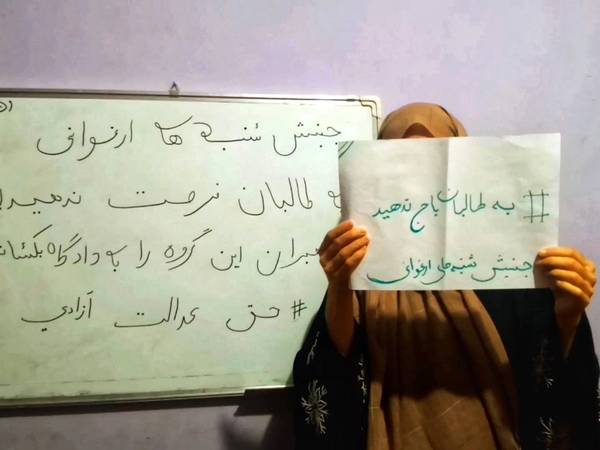 جنبش شنبه ها ارغوانی
به طالبان فرصت ندهید
این گروه را به دادگاه بکشانید
# حق عدالت آزادي
# به طالبان باج ندهید
جنبش شنبه های ارغوانی